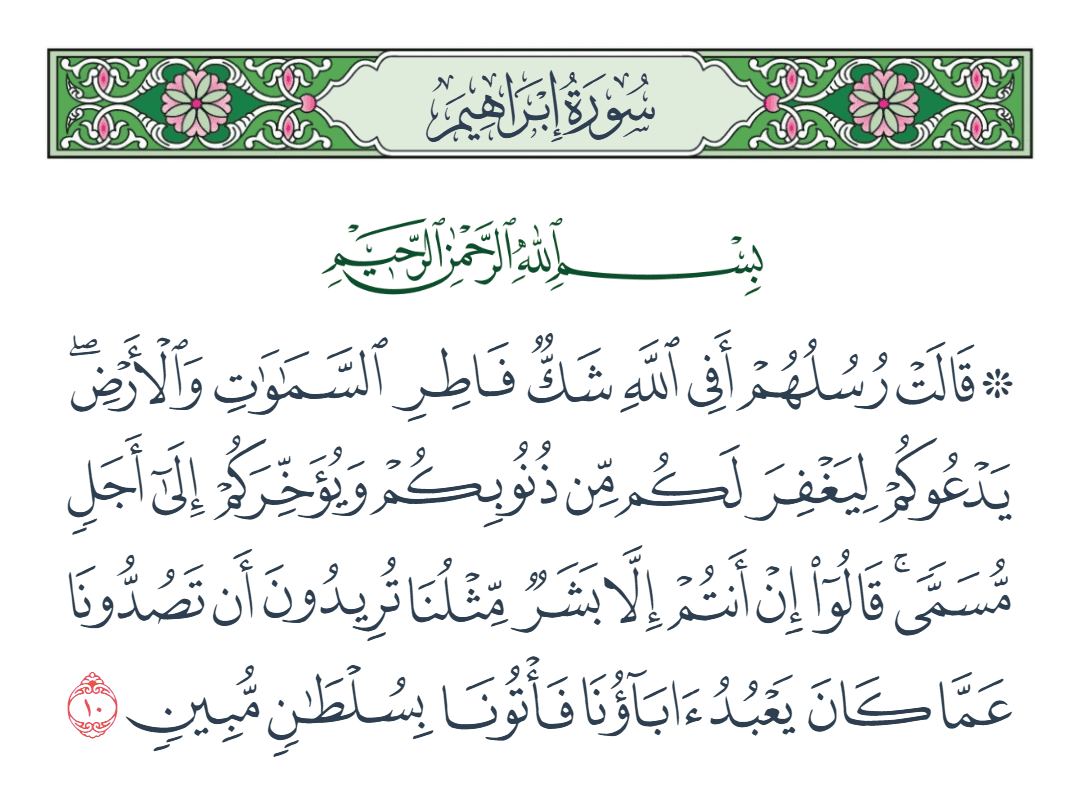 سُورَةُ إِبْرَاهِيمَ
بِسْمِ ٱللَّهِ ٱلرَّحْمَٰنِ ٱلرَّحِيمِ
۞ قَالَتْ رُسُلُهُمْ أَفِى ٱللَّهِ شَكٌّ فَاطِرِ ٱلسَّمَٰوَٰتِ وَٱلْأَرْضِ ۖ
يَدْعُوكُمْ لِيَغْفِرَ لَكُم مِّن ذُنُوبِكُمْ وَيُؤَخِّرَكُمْ إِلَىٰٓ أَجَلٍ
مُّسَمًّى ۚ قَالُوٓا۟ إِنْ أَنتُمْ إِلَّا بَشَرٌ مِّثْلُنَا تُرِيدُونَ أَن تَصُدُّونَا
عَمَّا كَانَ يَعْبُدُ ءَابَآؤُنَا فَأْتُونَا بِسُلْطَٰنٍ مُّبِينٍ ١٠